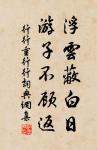 浮雲蔽白日
游子不顧返
行行重行行詞典網集